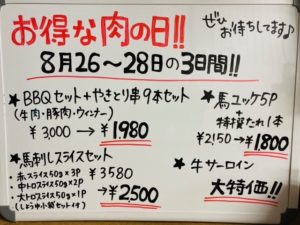 お得な肉の日!!
ぜひ
お待ちしてます♪
8月26〜28日の3日間!!
★BBQセット+やきとり串9本セット
(牛肉・豚肉・ウィンナー)
¥3,000→¥1980
★馬刺しスライスセット
・赤スライス50g×3P ¥3580
・中トロスライス50g×2P
・大トロスライス50g×1P →¥2,500
(しょうゆ小袋セット付)
★馬ユッケ5P
+特撰たれ1本
¥2150→¥1800
★牛サーロイン
大特価!!